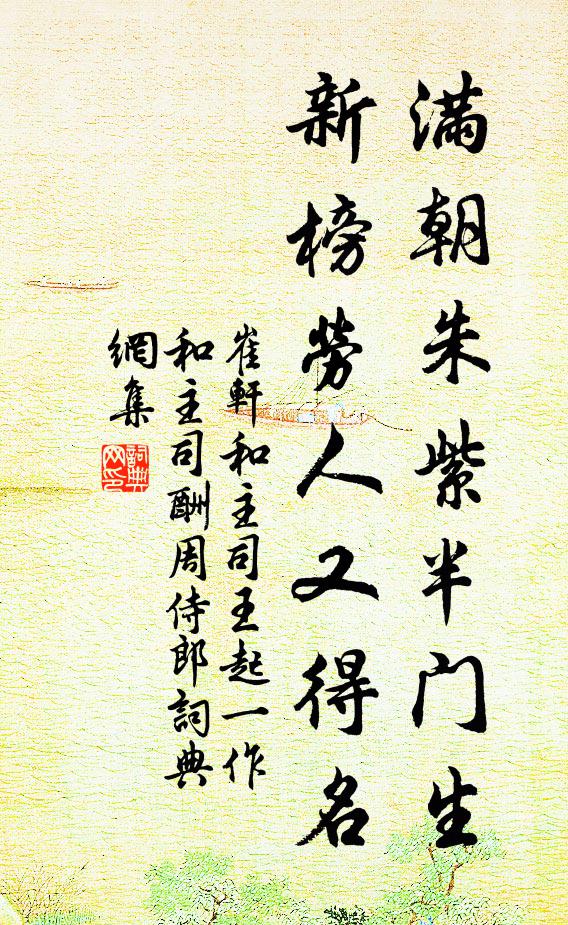 滿朝朱紫半門生
新榜勞人又得名
崔軒和主司王起一作
和主司酬周侍郎詞典
網集
詞典
网印